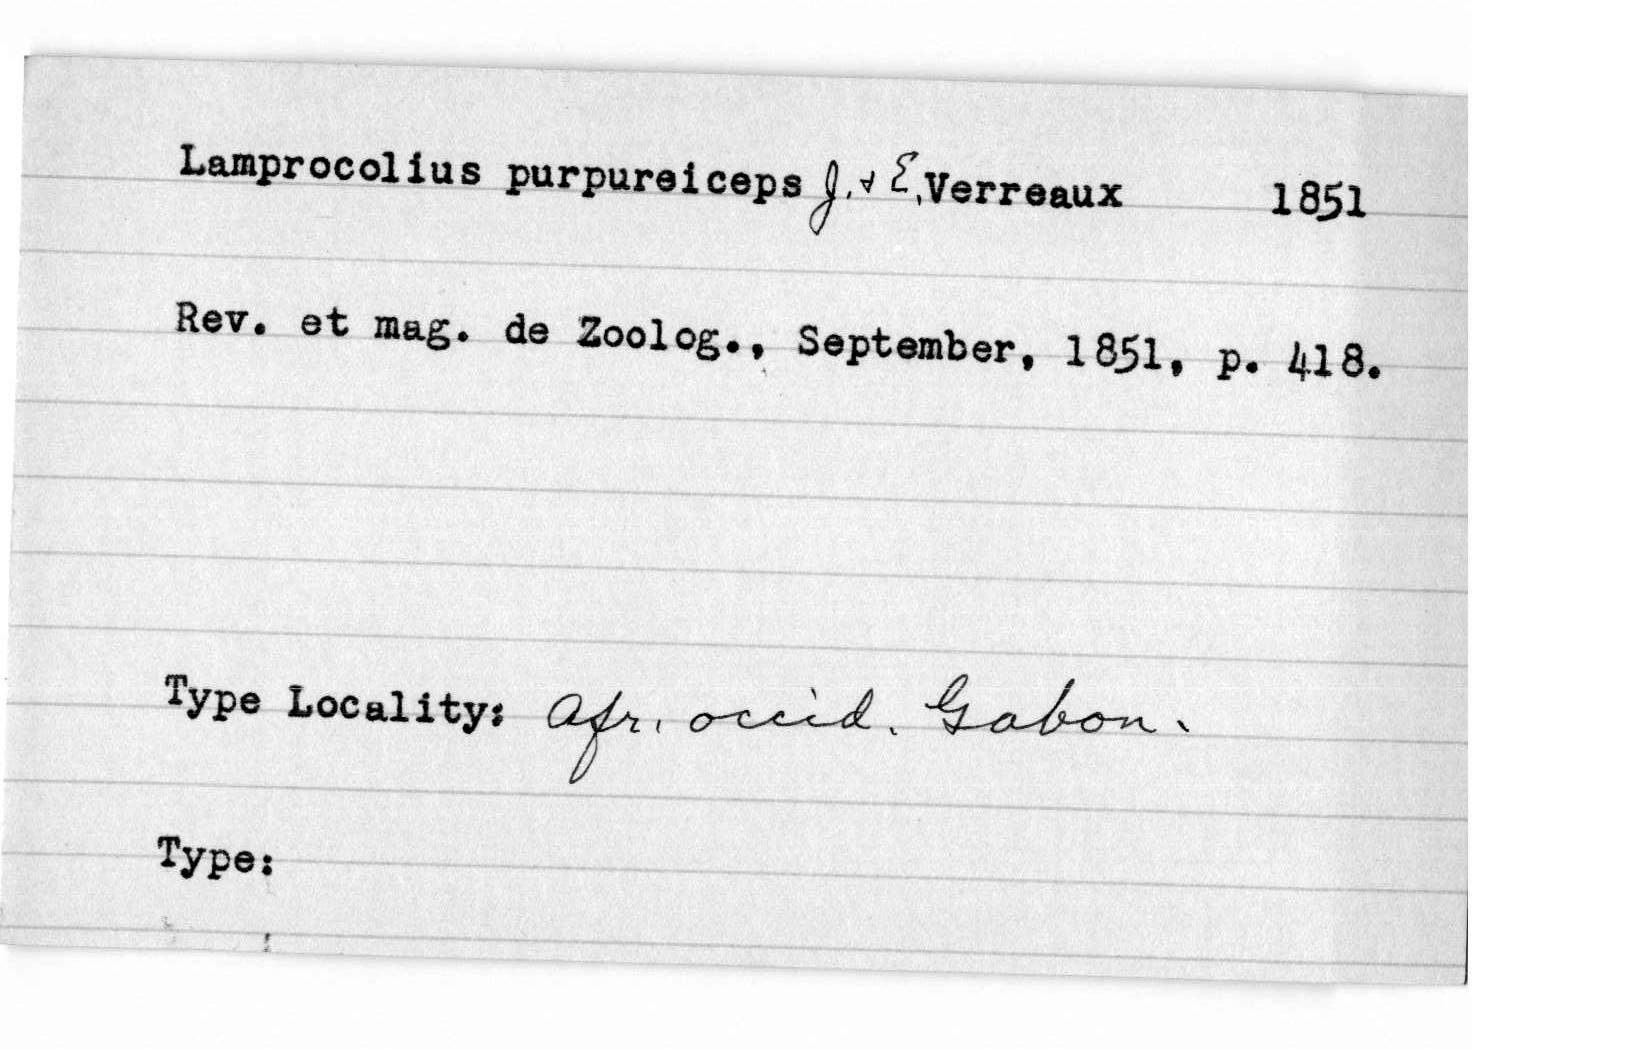 Lamprocolius purpureiceps J. & E. Verreaux 1851
Rev. et mag. de Zoolog., September, 1851, p. 418.
Type Locality: Afr. occid. Gabon.
Type: